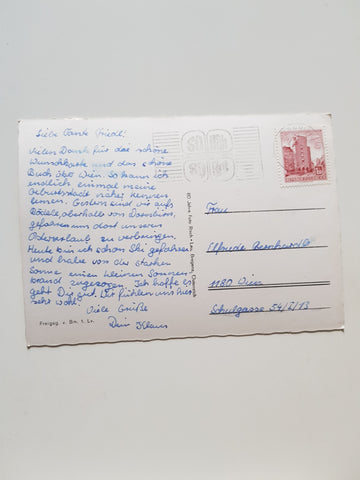 Liebe Tante Friedl!
Vielen Dank für die schöne
Wunschkarte und das schöne
Buch über Wien. So kann ich
endlich einmal meine
Geburtsstadt näher kennen
lernen. Gestern sind wir aufs
Bödele, oberhalb von Dornbirn,
gefahren um dort unseren
Osterurlaub zu verbringen.
Heute bin ich schon Ski gefahren
und habe von der starken
Sonne einen kleinen Sonnen-
brand zugezogen. Ich hoffe es
geht Dir gut. Wir fühlen uns hier
sehr wohl.
Viele Grüße
Dein Klaus
Freigeg. v. Bm. f. Lv.
80 Jahre Foto Risch-Lau, Bregenz, Österreich
Frau
1180 Wien
Schulgasse 54/I/13